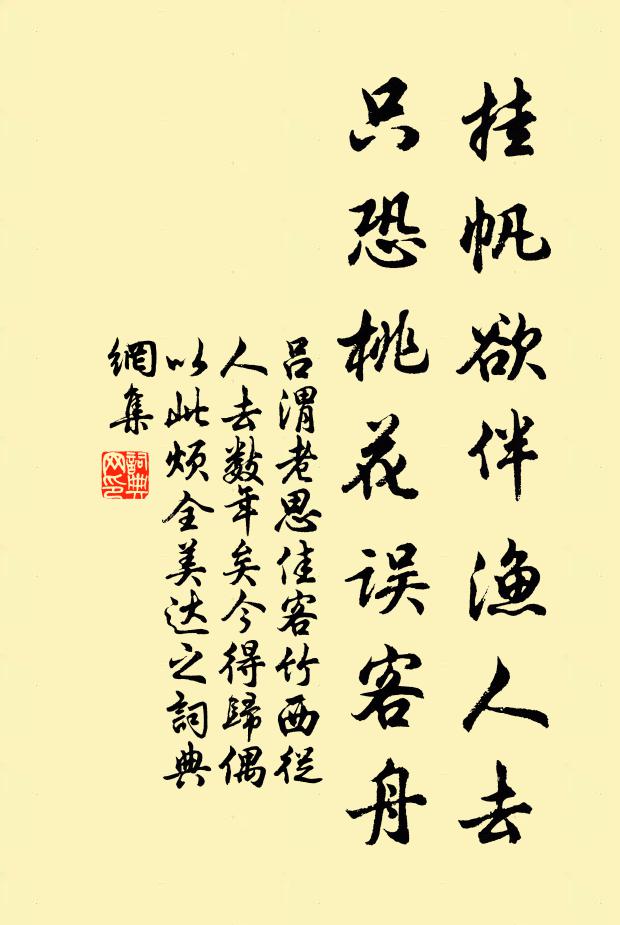 挂帆欲伴渔人去
只恐桃花误客舟
吕渭老思佳客竹西従
人去数年矣今得歸偶
以此烦全美达之詞典
網集
詞典網印